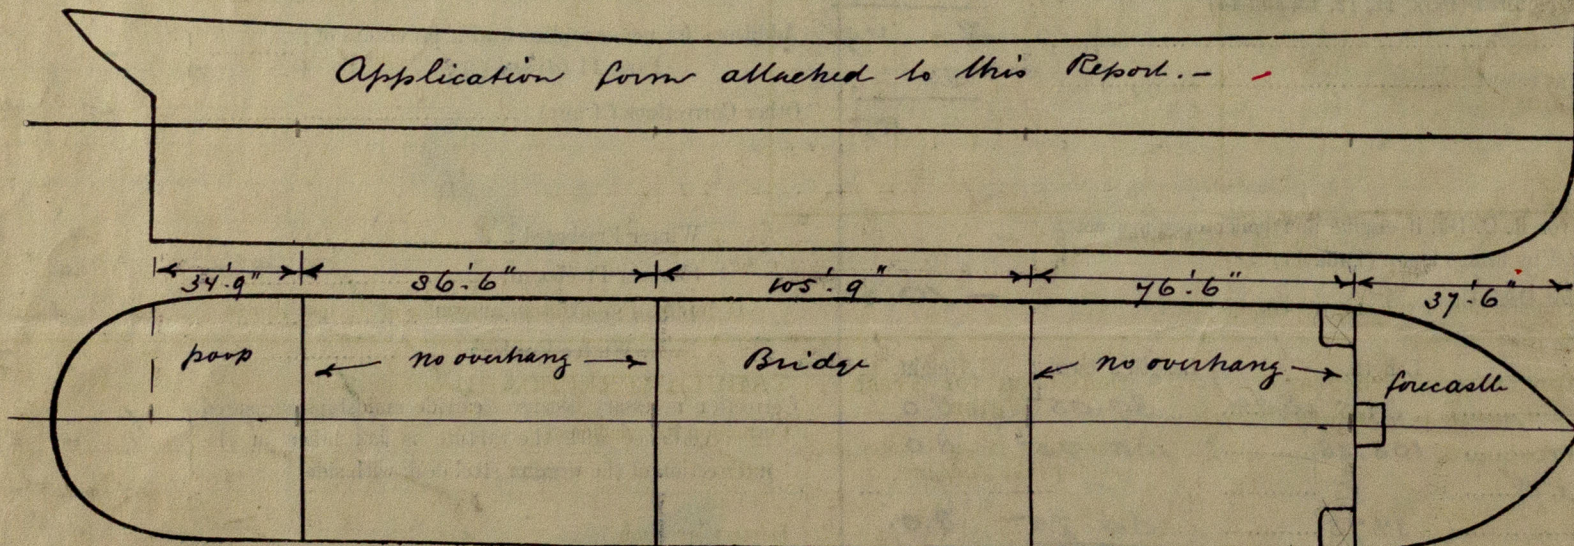 Application form attached to this Report. –
34'.9" 86'.6" 105'.9" 76'.6" 37'.6"
poop no overhang Bridge no overhang forecastle